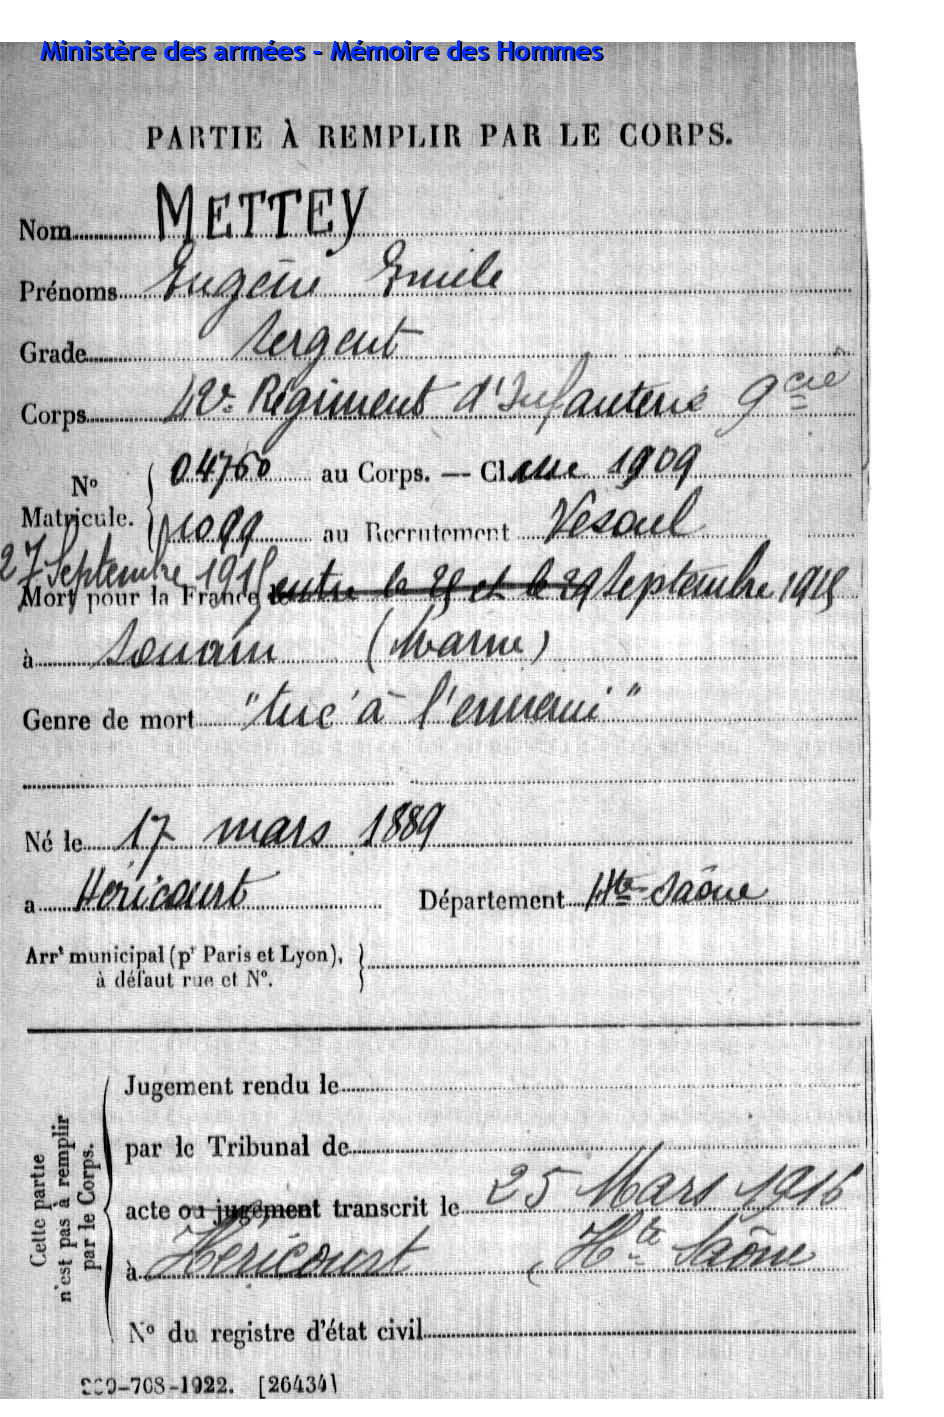 Ministère des armées - Mémoire des Hommes
PARTIE À REMPLIR PAR LE CORPS.
Nom METTEY
Prénoms Eugène Emile
Grade Sergent
Corps 42e Régiment d'Infanterie 9e Cie
N° Matricule. 04760 au Corps. — Classe 1909
1099 au Recrutement Vesoul
27 Septembre 1915
Mort pour la France le entre le 25 et le 29 Septembre 1915
à Souain (Marne)
Genre de mort "tué à l'ennemi"
Né le 17 mars 1889
a Héricourt Département Hte-Saône
Arrt municipal (pr Paris et Lyon),
à défaut rue et N°.
Cette partie
n'est pas à remplir
par le Corps.
Jugement rendu le
par le Tribunal de
acte ou jugement transcrit le 25 Mars 1916
à Hericourt (Hte Saône
N° du registre d'état civil
-708-1922. [26434]